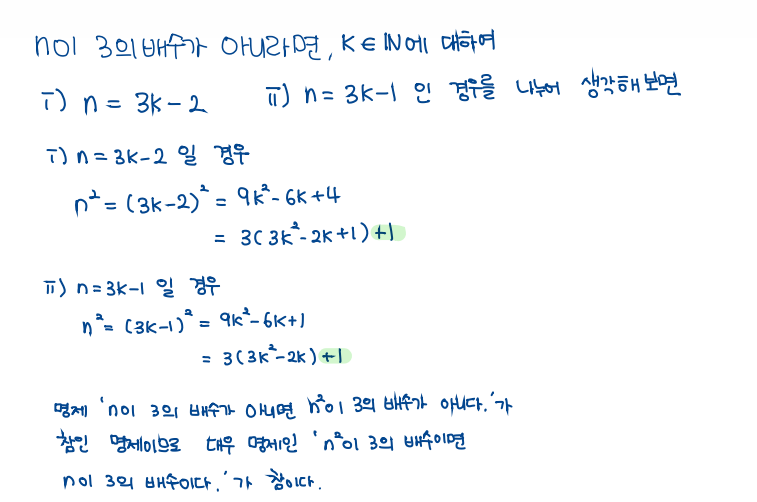 n이 3의 배수가 아니라면, K∈ℕ에 대하여
ⅰ) n = 3K-2 ⅱ) n = 3K-1 인 경우를 나누어 생각해보면
ⅰ) n = 3K-2 일 경우
n² = (3K-2)² = 9K²-6K+4
= 3(3K²-2K+1)+1
ⅱ) n = 3K-1 일 경우
n² = (3K-1)² = 9K²-6K+1
= 3(3K²-2K)+1
명제 'n이 3의 배수가 아니면 n²이 3의 배수가 아니다.'가
참인 명제이므로 대우 명제인 'n²이 3의 배수이면
n이 3의 배수이다.'가 참이다.